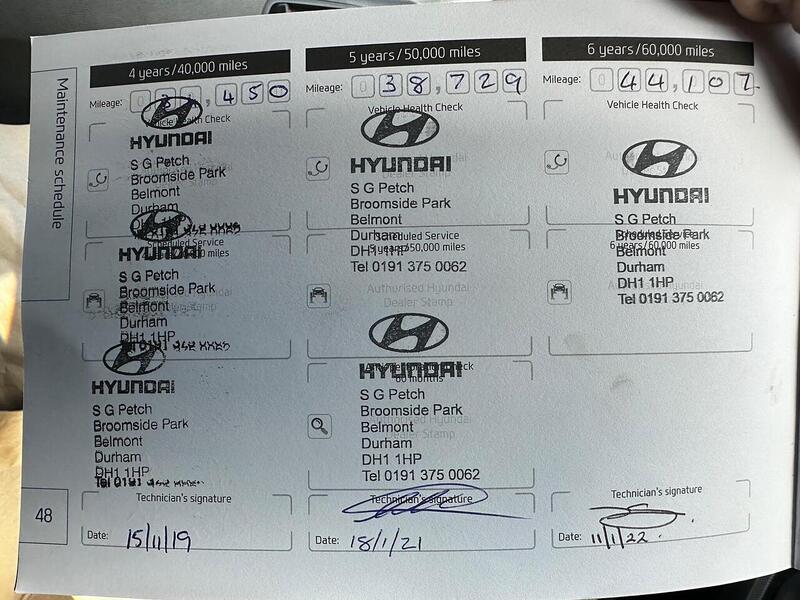 Maintenance schedule
4 years/40,000 miles
Mileage: ,450
Vehicle Health Check
HYUNDAI
S G Petch
Broomside Park
Belmont
Durham
DH1
Scheduled Service
miles
HYUNDAI
S G Petch
Broomside Park
Belmont
Durham
DH1 1HP
Tel 0191
HYUNDAI
S G Petch
Broomside Park
Belmont
Durham
DH1 1HP
Tel 0191
Technician's signature
Date: 15/11/19
5 years/50,000 miles
Mileage: 038,729
Vehicle Health Check
HYUNDAI
S G Petch
Broomside Park
Belmont
Durham
Scheduled Service
5 years/50,000 miles
DH1 1HP
Tel 0191 375 0062
Authorised Hyundai
Dealer Stamp
HYUNDAI
60 months
S G Petch
Broomside Park
Belmont
Durham
DH1 1HP
Tel 0191 375 0062
Technician's signature
Date: 18/1/21
6 years/60,000 miles
Mileage: 044,107
Vehicle Health Check
HYUNDAI
S G Petch
Scheduled Service
Broomside Park
6 years/60,000 miles
Belmont
Durham
DH1 1HP
Tel 0191 375 0062
Technician's signature
Date: 11/1/22.
48